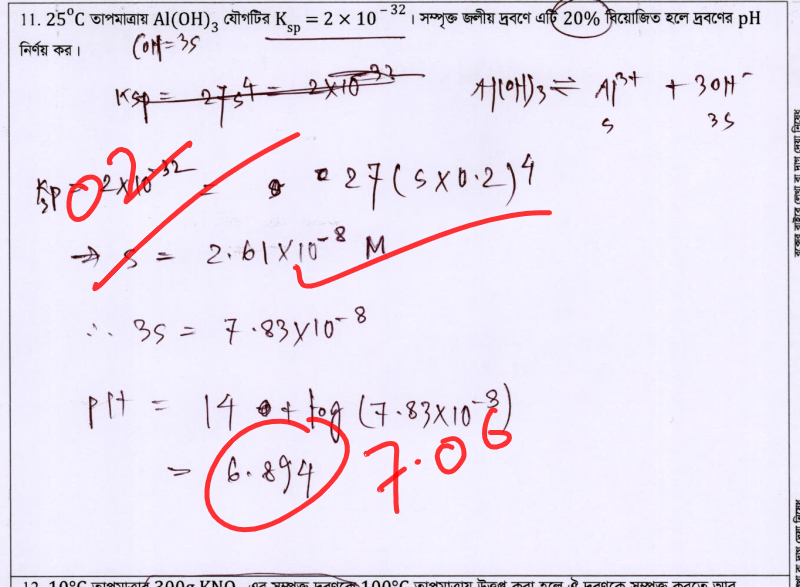 11. 25°C তাপমাত্রায় Al(OH)₃ যৌগটির Kₛₚ = 2 × 10⁻³² । সম্পৃক্ত জলীয় দ্রবণে এটি 20% বিয়োজিত হলে দ্রবণের pH
নির্ণয় কর।
COH = 3s
Ksp = 27s⁴ = 2×10⁻³²
Al(OH)₃ ⇌ Al³⁺ + 3OH⁻
s 3s
02
Ksp = 2×10⁻³² = 27(s×0.2)⁴
⇒ s = 2.61×10⁻⁸ M
∴ 3s = 7.83×10⁻⁸
pH = 14 + log (7.83×10⁻⁸)
= 6.894 7.06
12. 10°C তাপমাত্রায় 300g KNO₃ এর সম্পৃক্ত দ্রবণকে 100°C তাপমাত্রায় উত্তপ্ত করা হলে ঐ দ্রবণকে সম্পৃক্ত করতে আর